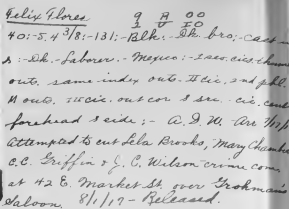 Felix Flores 9 A OO
1 U IO
40:-5.4 3/8:-131;-Blk:-Dk. bro;-cast
:-Dk-Laborer.-Mexico:-1 sec. cis. thumb
outs. same index outs. IIcic. 2nd phl.
N outs. IIIcic. out cor. & src. cic. cent
forehead & side;- A.D.W. Arr 7/17/17
Attempted to cut Lela Brooks, Mary Chambers
C.C. Griffin & J.C. Wilson crime com
at 42 E. Market St. over Grohman's
Saloon. 8/1/17-Released.